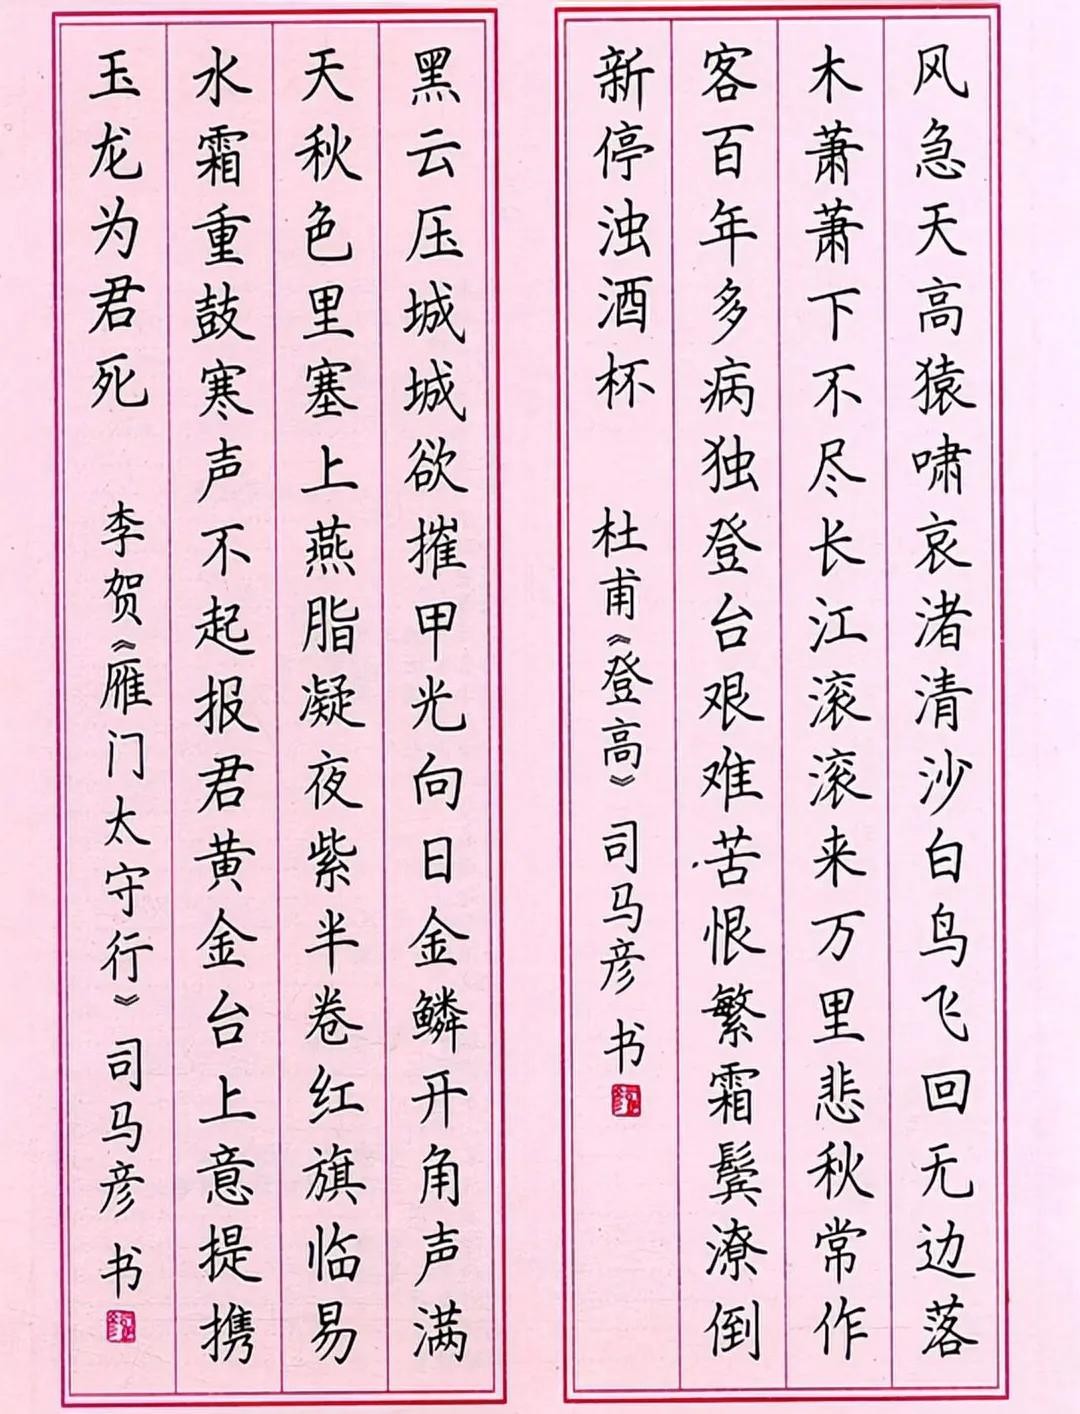 风急天高猿啸哀渚清沙白鸟飞回无边落
木萧萧下不尽长江滚滚来万里悲秋常作
客百年多病独登台艰难苦恨繁霜鬓潦倒
新停浊酒杯 杜甫《登高》司马彦 书
黑云压城城欲摧甲光向日金鳞开角声满
天秋色里塞上燕脂凝夜紫半卷红旗临易
水霜重鼓寒声不起报君黄金台上意提携
玉龙为君死 李贺《雁门太守行》司马彦 书